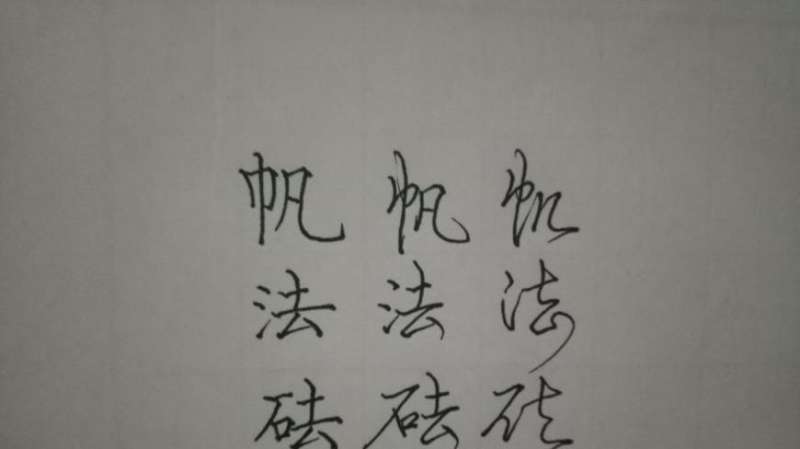 帆 帆 帆
法 法 法
砝 砝 砝